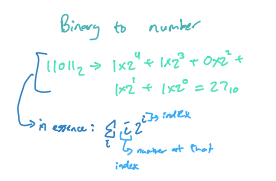 Binary to number
11011₂ → 1x2⁴ + 1x2³ + 0x2² +
1x2¹ + 1x2⁰ = 27₁₀
in essence: Σ i 2ⁱ → index
i
number at that
index